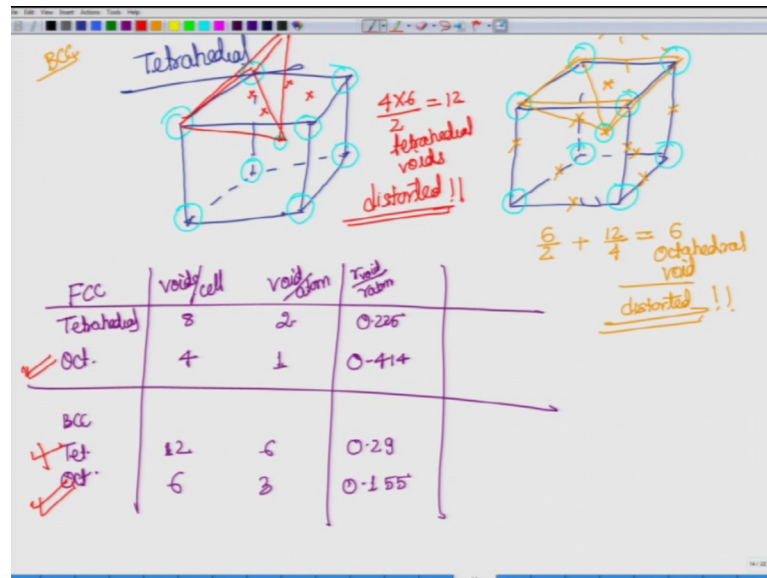 File Edit View Insert Actions Tools Help
BCC
Tetrahedral
4×6/2 = 12
tetrahedral
voids
distorted!!
6/2 + 12/4 = 6
Octahedral
void
distorted!!
FCC voids/cell void/atom rvoid/ratom
Tetrahedral 8 2 0.225
Oct. 4 1 0.414
BCC
Tet. 12 6 0.29
Oct. 6 3 0.155